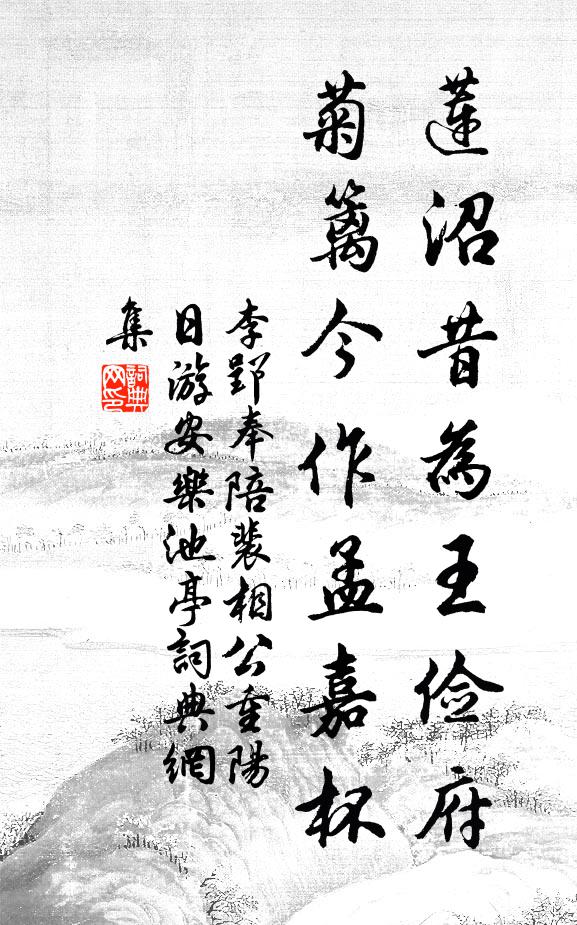 蓮沼昔為王儉府
菊籬今作孟嘉杯
李郢奉陪裴相公重陽
日游安樂池亭詞典網
集
詞典
网印